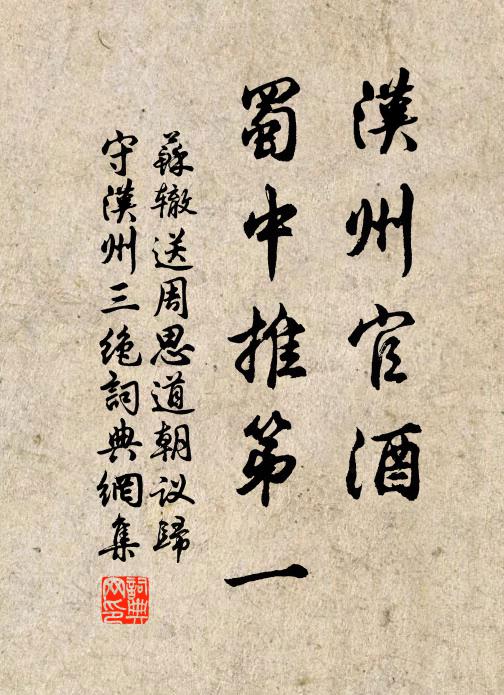 漢州官酒
蜀中推第一
蘇轍送周思道朝议歸
守漢州三绝詞典網集
詞典网印